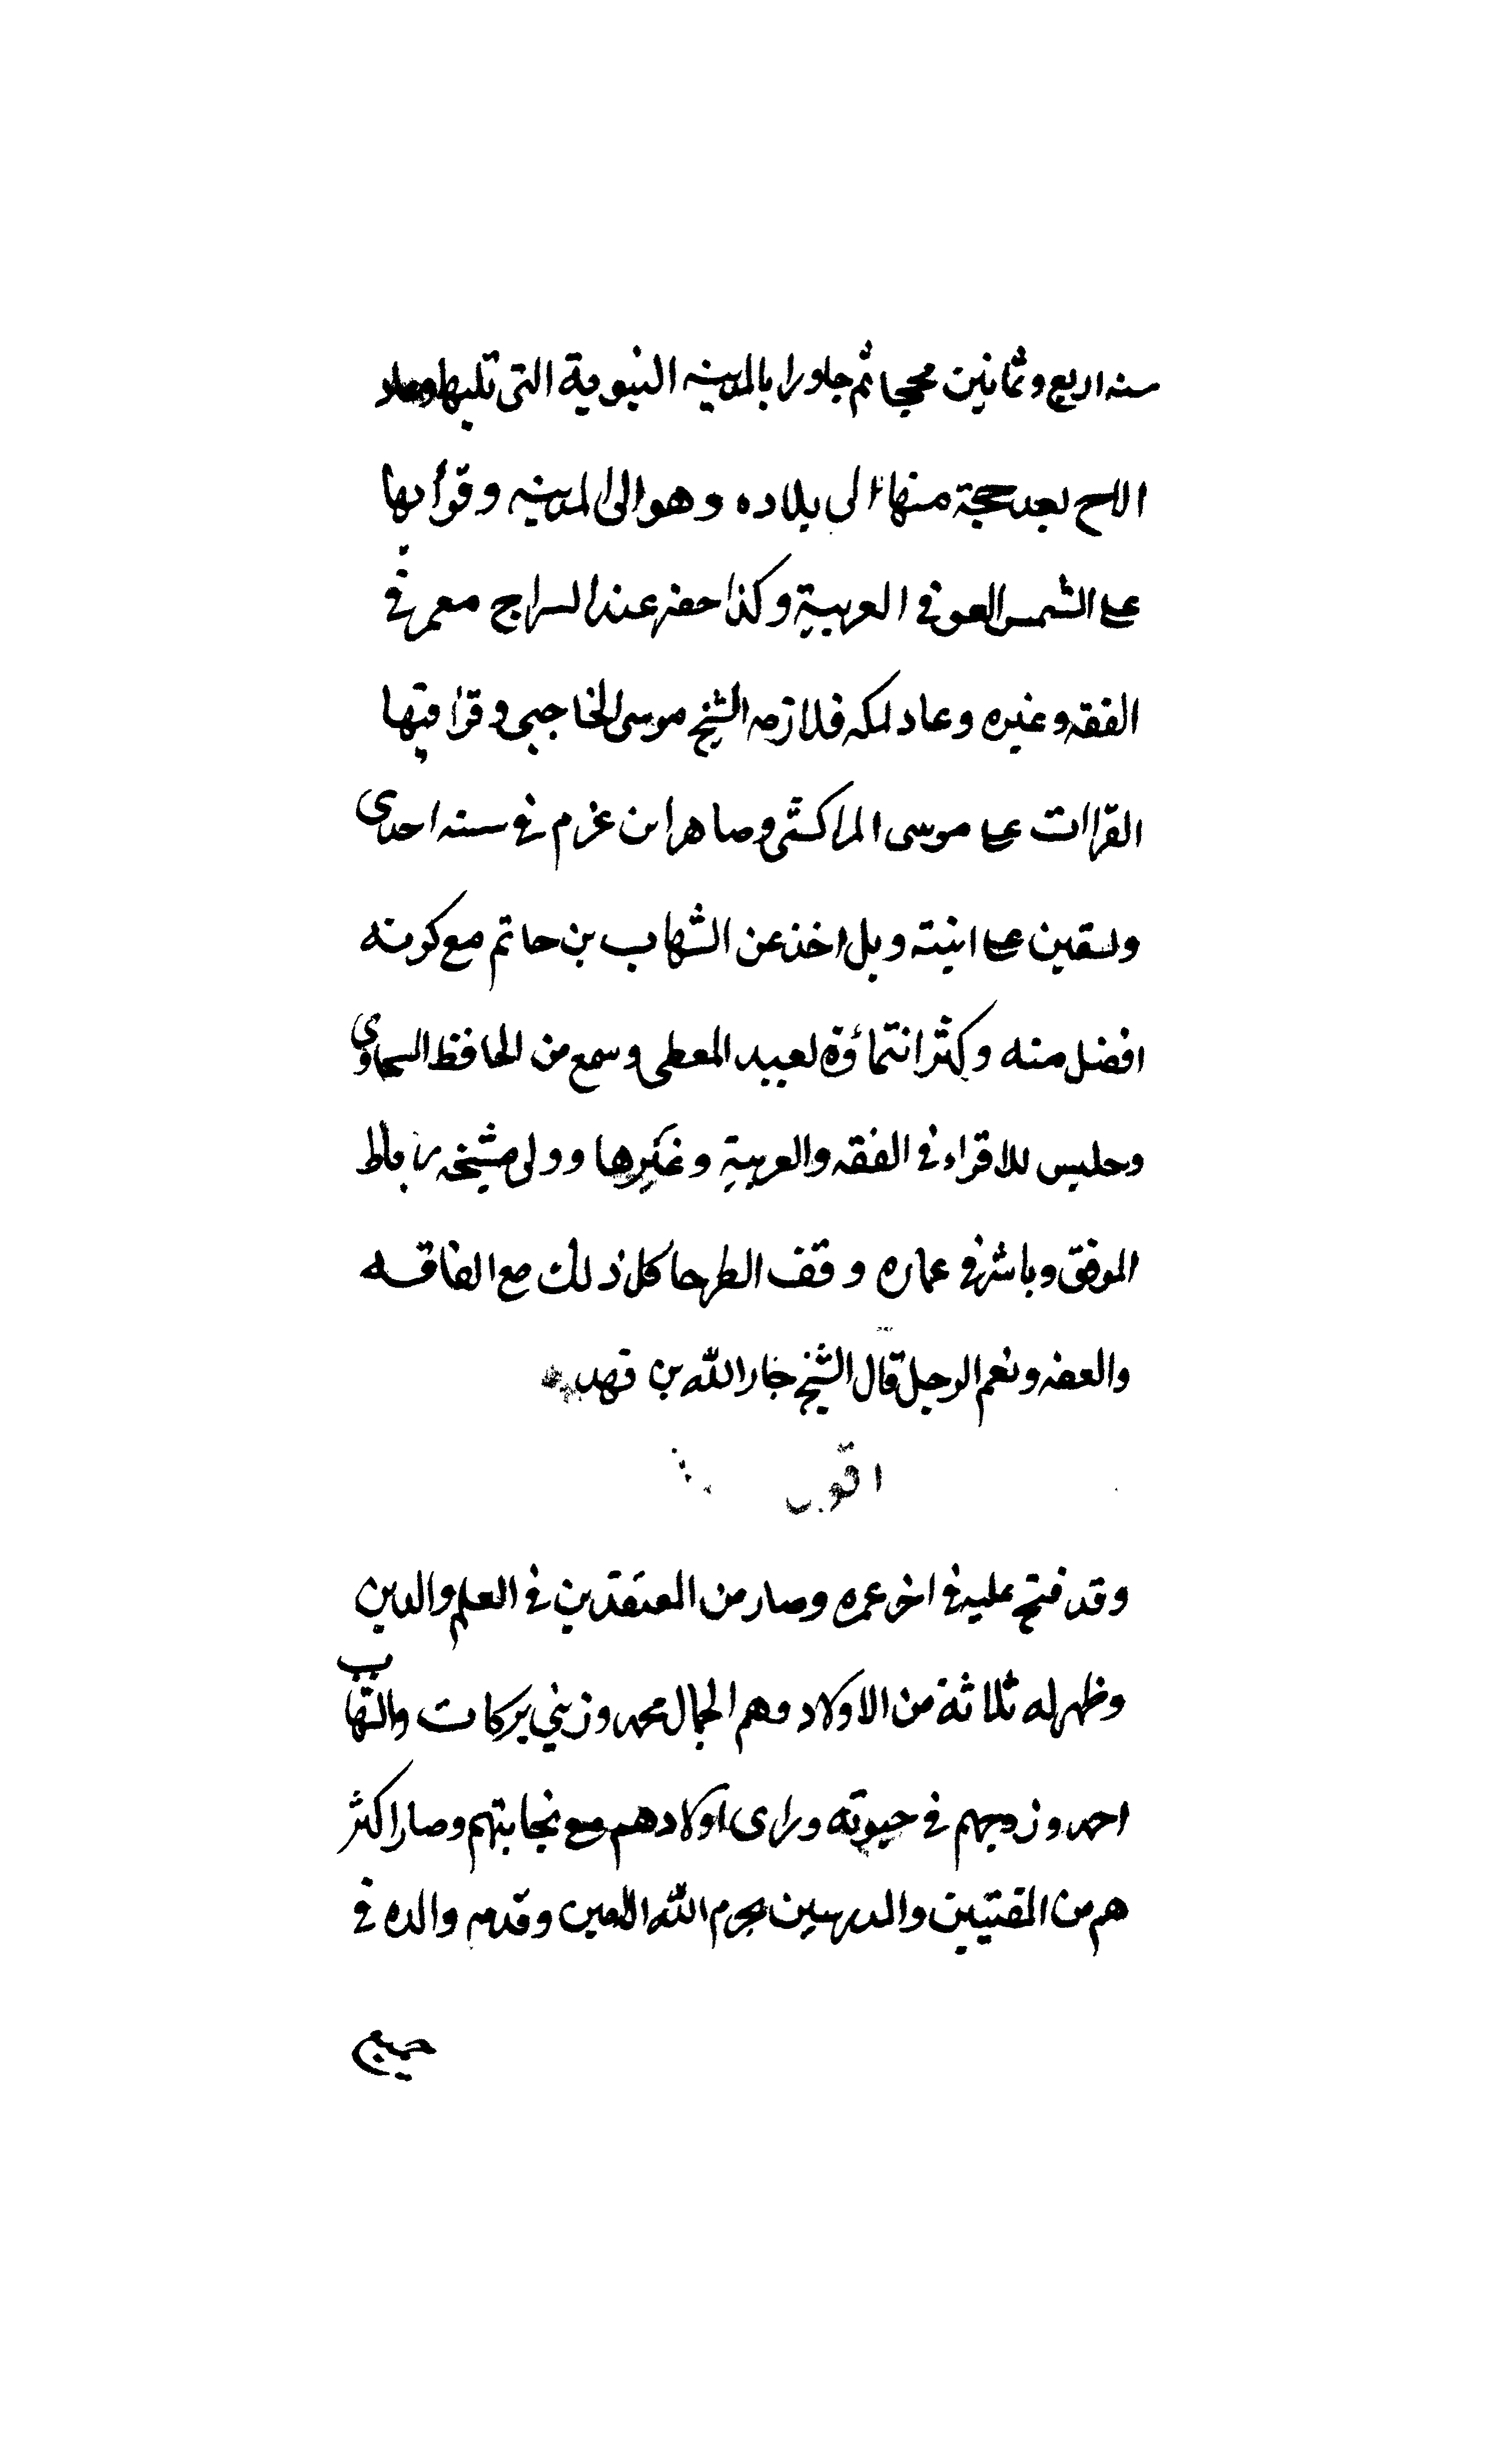 سنه اربع وثمانين فحجا ثم جاورا بالمدينه النبوية التى تليها وعاد
الاخ بعد حجة منها الى بلاده وهو الى المدينه وقرأ بها
على الشمس العوفى العربية وكذا حضر عند السراج معمر فى
الفقه وغيره وعاد لمكه فلازمه الشيخ موسى الحاجبى وقرا فيها
القراات على موسى المراكشى وصاهر ابن عزم فى سنه احدى
وتسعين على ابنته وبل اخذ عن الشهاب بن حاتم مع كونه
افضل منه وكثر انتماؤه لعبد المعطى وسمع من الحافظ السخاوي
وجلس للاقراء فى الفقه والعربية وغيرها وولى مشيخه رباط
الموفق وباشر فى عماره وقف الطرحا كل ذلك مع الفاقه
والعفه ونعم الرجل قال الشيخ جار الله بن فهد
اقول
وقد فتح عليه فى اخر عمره وصار من المعتقدين فى العلم والدين
وظهر له ثلاثة من الاولاد وهم الجمال محمد وزيني بركات والشهاب
احمد وزوجهم فى حيوته وراى اولادهم مع نجابتهم وصار اكثر
هم من المفتيين والمدرسين بحرم الله الامين وقدمه والده فى
جميع